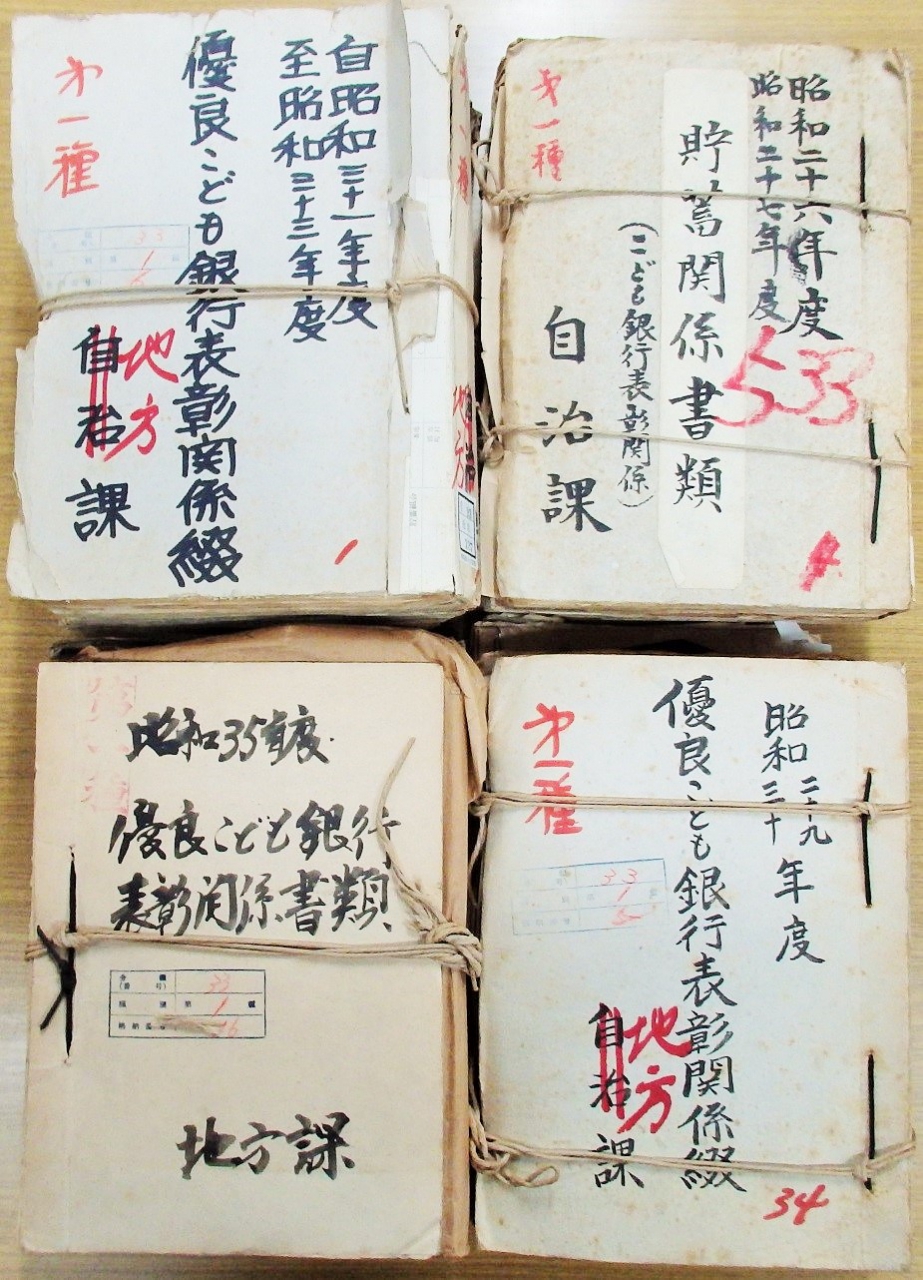 自昭和三十一年度
至昭和三十三年度
優良こども銀行表彰関係綴
才一種
33
1
地方
自治課
昭和二十六年度
昭和二十七年度
533
貯蓄関係書類
(こども銀行表彰関係)
自治課
才一種
昭和35年度
優良こども銀行
表彰関係書類
33
第1號
地方課
昭和二十九年度
三十
優良こども銀行表彰関係綴
才一種
33
1
5
地方
自治課
34